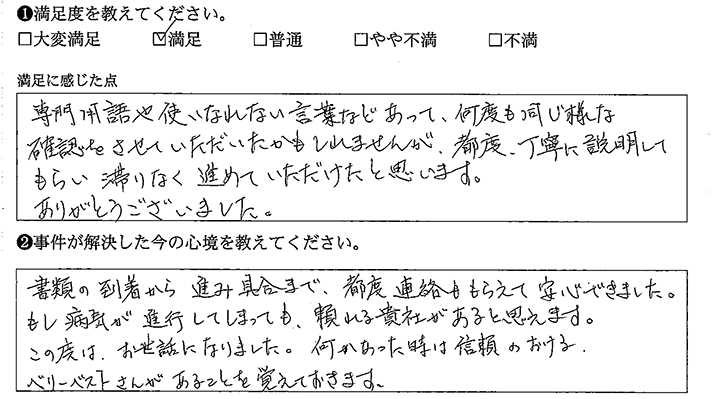 ❶満足度を教えてください。
□大変満足 ☑満足 □普通 □やや不満 □不満
満足に感じた点
専門用語や使いなれない言葉などあって、何度も同じ様な
確認をさせていただいたかもしれませんが、都度、丁寧に説明して
もらい滞りなく進めていただけたと思います。
ありがとうございました。
❷事件が解決した今の心境を教えてください。
書類の到着から進み具合まで、都度連絡ももらえて安心できました。
もし病気が進行してしまっても、頼れる貴社があると思えます。
この度は、お世話になりました。何かあった時は信頼のおける、
ベリーベストさんがあることを覚えておきます。